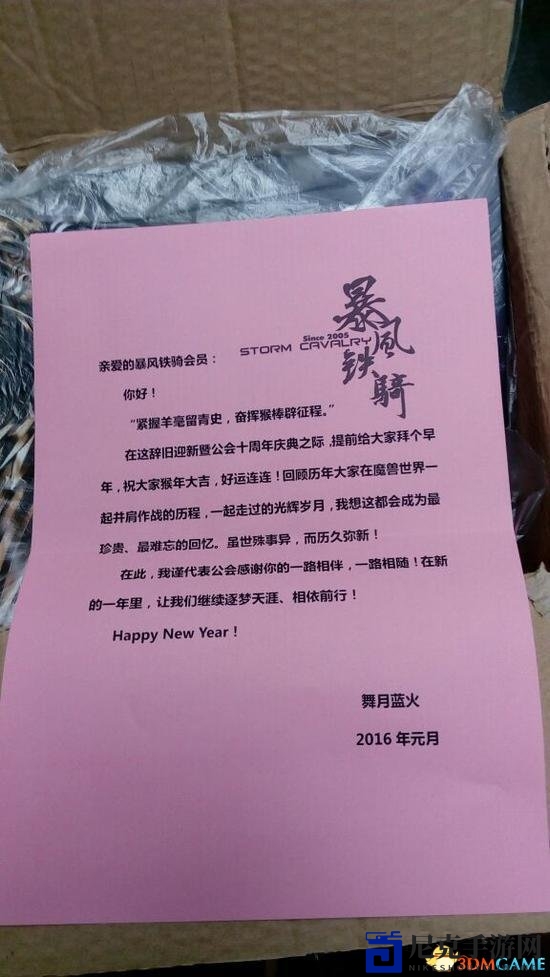 暴風
铁騎
Since 2005
STORM CAVALRY
亲爱的暴风铁骑会员：
你好！
“紧握羊毫留青史，奋挥猴棒辟征程。”
在这辞旧迎新暨公会十周年庆典之际，提前给大家拜个早
年，祝大家猴年大吉，好运连连！回顾历年大家在魔兽世界一
起并肩作战的历程，一起走过的光辉岁月，我想这都会成为最
珍贵、最难忘的回忆。虽世殊事异，而历久弥新！
在此，我谨代表公会感谢你的一路相伴，一路相随！在新
的一年里，让我们继续逐梦天涯、相依前行！
Happy New Year！
舞月蓝火
2016 年元月
尼克手游网
3DMGAME